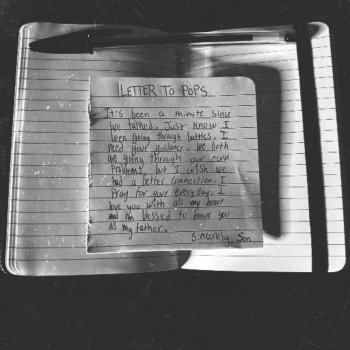 LETTER TO POPS
It's been a minute since
we talked. Just know I
been going through battles. I
need your guidance. We both
are going through our own
problems, but I wish we
had a better connection. I
pray for you everyday. I
love you with all my heart
and I'm blessed to have you
as my father.
Sincerely, Son